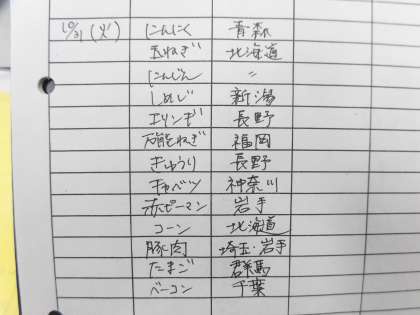 10/31 (火) にんにく 青森
玉ねぎ 北海道
にんじん 〃
しめじ 新潟
エリンギ 長野
万能ねぎ 福岡
きゅうり 長野
キャベツ 神奈川
赤ピーマン 岩手
コーン 北海道
豚肉 埼玉・岩手
たまご 群馬
ベーコン 千葉